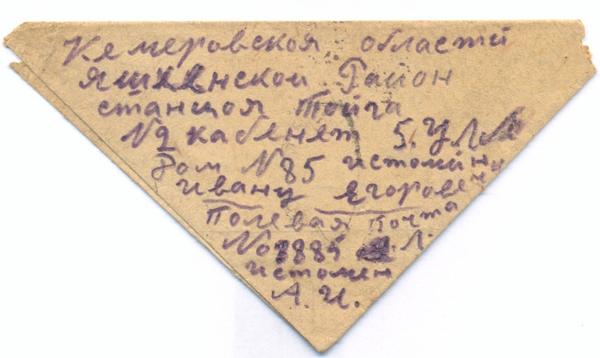 Кемеровскоя области
Яшкенской Район
станцоя Тойга
№2 кабенет 5.
Дом №85 истомину
ивану Егоровечу
Полевая почта
№
истомен
А. И.